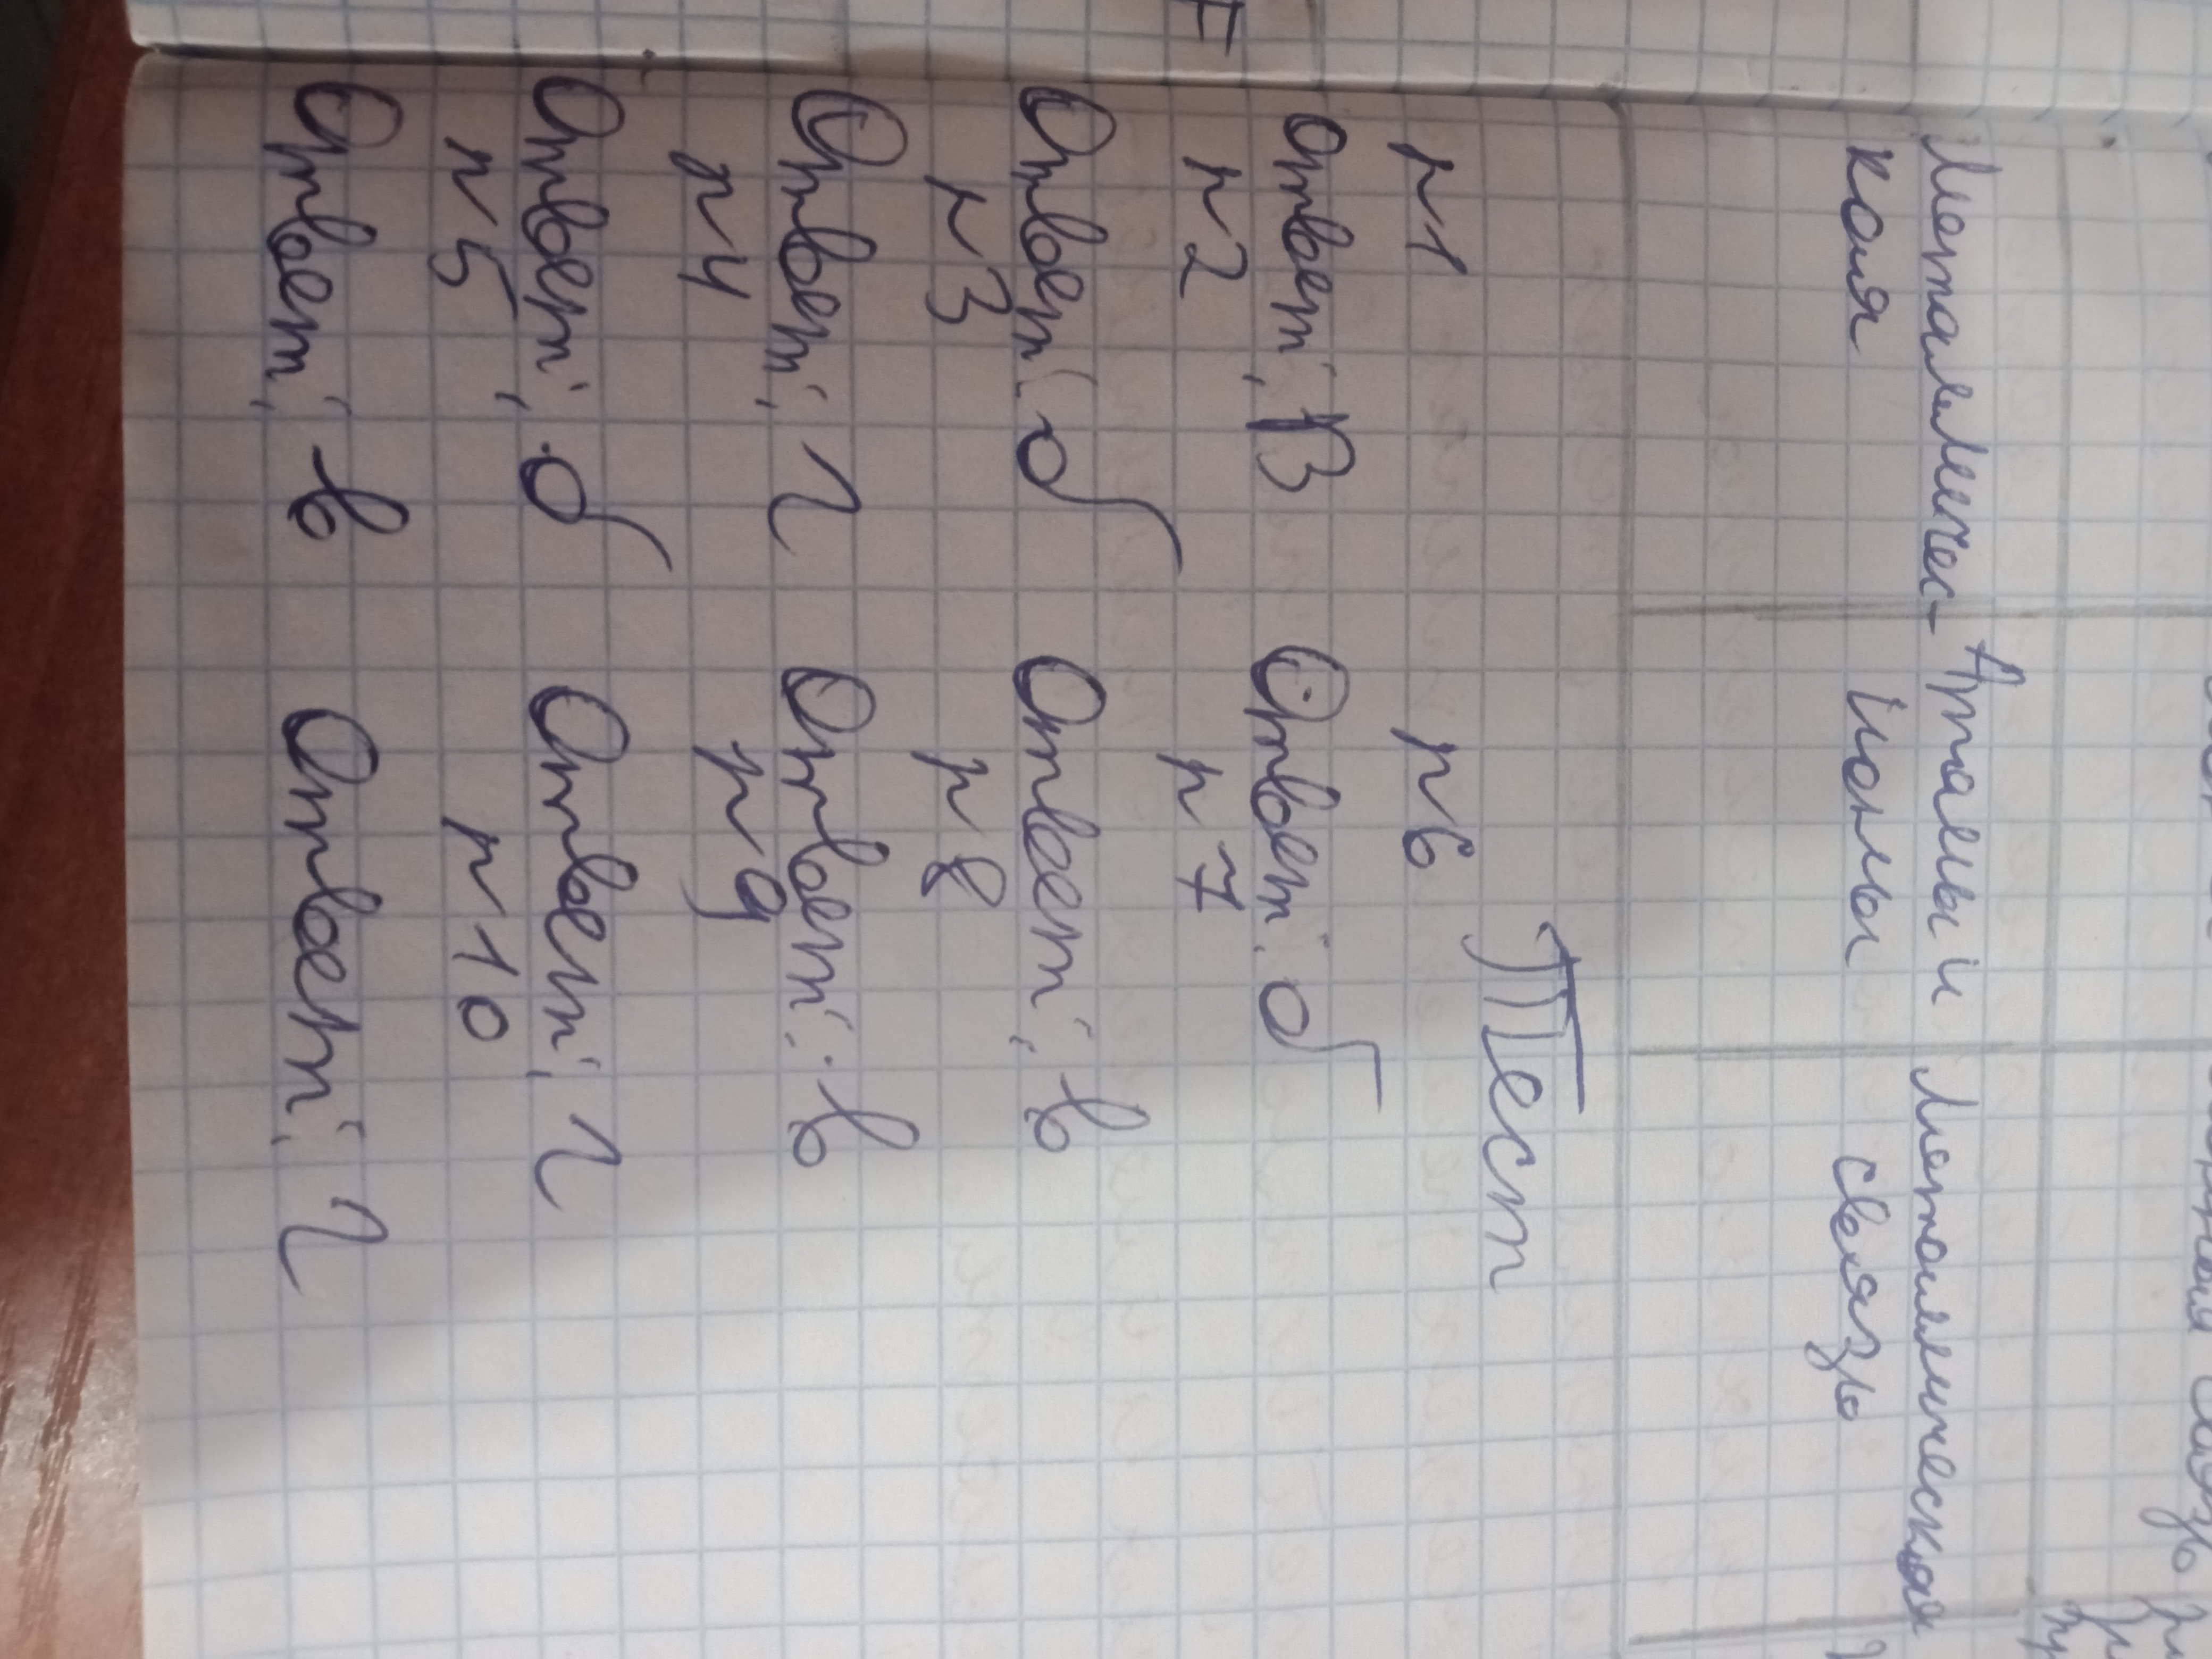 Металличес- Атомы и Металлическая
кая ионы связь
Тест
n1 n6
Ответ: В Ответ: б
n2 n7
Ответ: б Ответ: в
n3 n8
Ответ: г Ответ: в
n4 n9
Ответ: б Ответ: г
n5 n10
Ответ: в Ответ: г